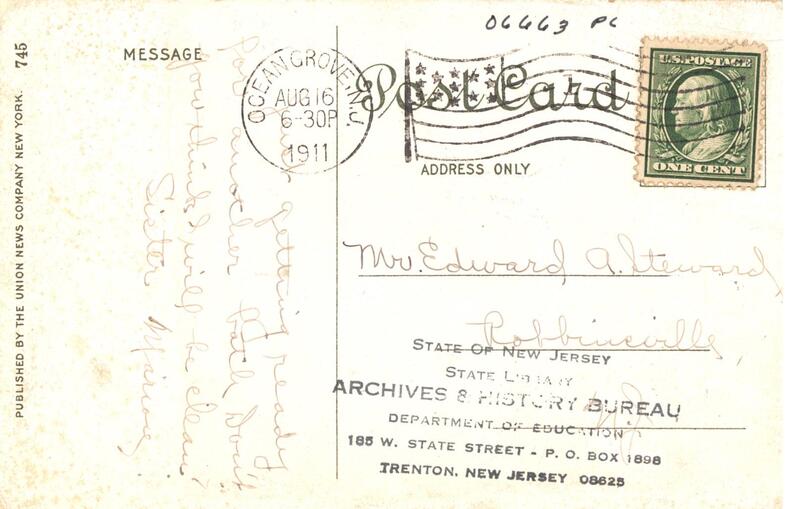 06663 PC
745
PUBLISHED BY THE UNION NEWS COMPANY NEW YORK.
MESSAGE
Just getting ready
for another bath Don't
you think I will be clean?
Sister Marion
OCEAN GROVE, N.J.
AUG 16
6-30P
1911
Post Card
ADDRESS ONLY
U.S. POSTAGE
ONE CENT
Mr. Edward A. Steward,
Robbinsville
N.J.
STATE OF NEW JERSEY
STATE LIBRARY
ARCHIVES & HISTORY BUREAU
DEPARTMENT OF EDUCATION
185 W. STATE STREET - P. O. BOX 1898
TRENTON, NEW JERSEY 08625